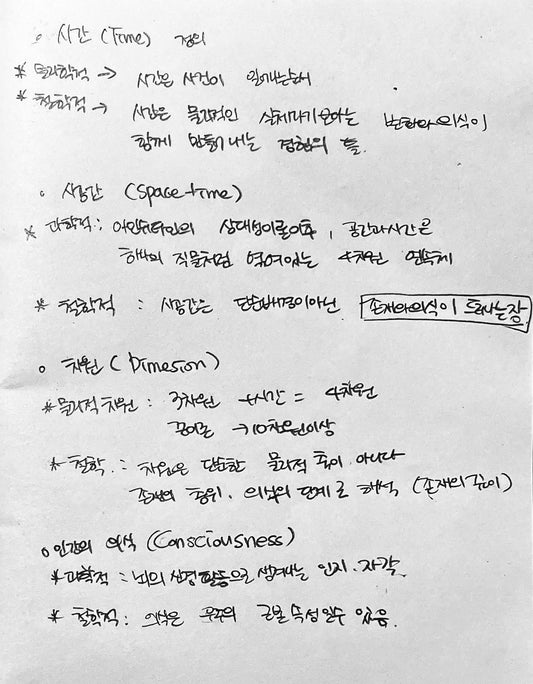 ○ 시간 (Time) 정의
* 물리학적 → 시간은 사건이 일어나는 순서
* 철학적 → 시간은 물리적인 실체라기보다는 변화와 의식이
함께 만들어내는 경험의 틀.
○ 시공간 (Space-time)
* 과학적: 아인슈타인의 상대성이론이후, 공간과 시간은
하나의 직물처럼 엮여있는 4차원 연속체
* 철학적 : 시공간은 단순배경이아닌 존재와 의식이 드러나는 장
○ 차원 (Dimesion)
* 물리적 차원 : 3차원 +시간 = 4차원
끈이론 → 10차원이상
* 철학 : 차원은 단순한 물리적 축이 아니다
존재의 층위. 의식의 단계로 해석 (존재의 깊이)
○ 인간의 의식 (Consciousness)
* 과학적 : 뇌의 신경활동으로 생겨나는 인지. 자각.
* 철학적 : 의식은 우주의 근본 속성일수 있음.